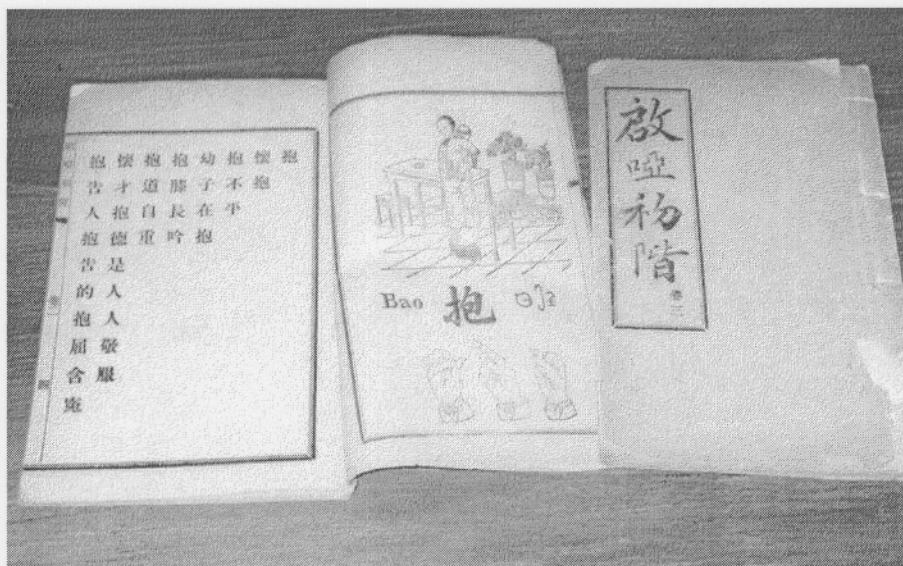 啟啞初階
卷三
Bao 抱
抱
懷抱
抱不平
幼子在抱
抱膝長吟
抱道自重
懷才抱德是人人敬服
抱告人抱告的抱屈含寃